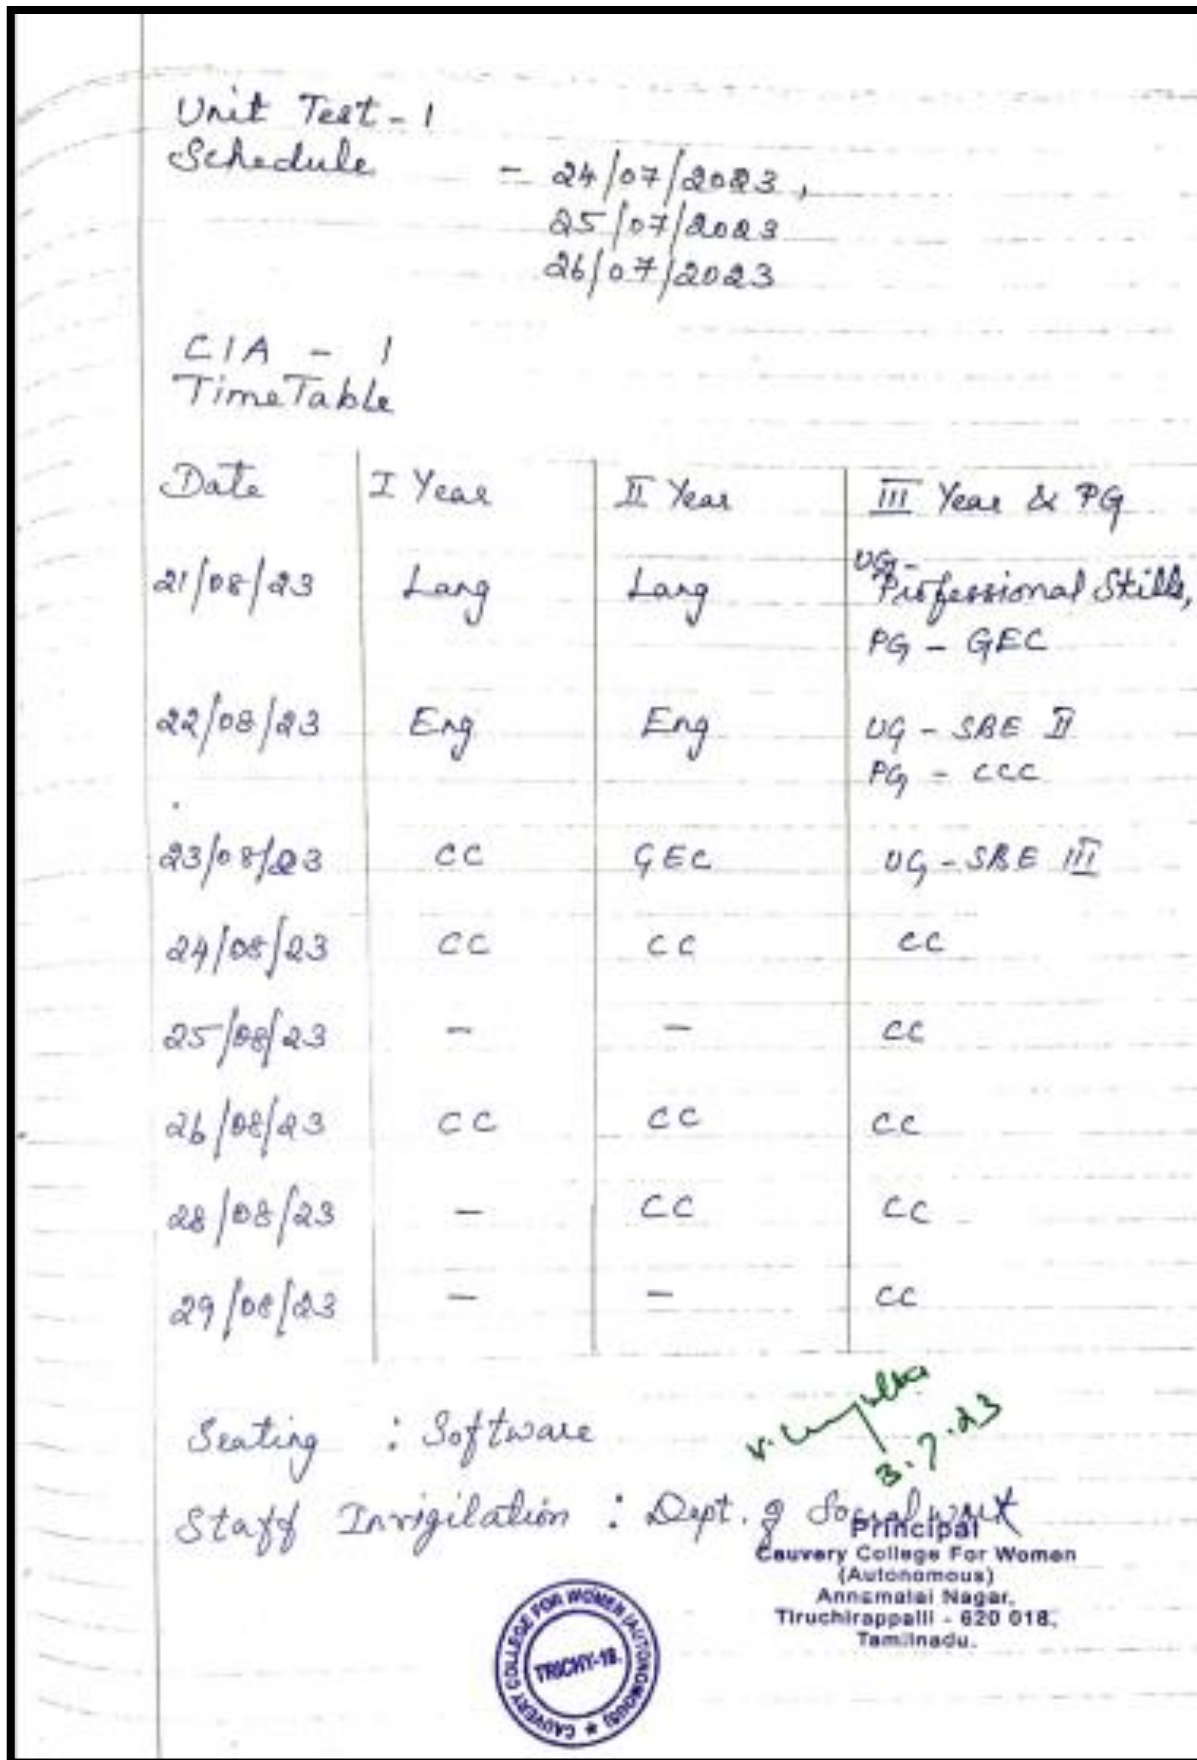 Unit Test - 1
Schedule - 24/07/2023,
25/07/2023
26/07/2023
CIA - 1
TimeTable
Date I Year II Year III Year & PG
21/08/23 Lang Lang UG - Professional Skills,
PG - GEC
22/08/23 Eng Eng UG - SBE II
PG - CCC
23/08/23 CC GEC UG - SBE III
24/08/23 CC CC CC
25/08/23 - - CC
26/08/23 CC CC CC
28/08/23 - CC CC
29/08/23 - - CC
Seating : Software
3.7.23
Staff Invigilation : Dept. of Social work
Principal
Cauvery College For Women
(Autonomous)
Annamalai Nagar,
Tiruchirappalli - 620 018,
Tamilnadu.
CAUVERY COLLEGE FOR WOMEN (AUTONOMOUS)
TRICHY-18.